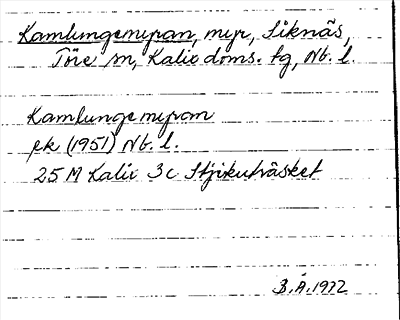 Kamlungemyran, myr, Siknäs,
Töre sn, Kalix doms. tg, Nb. l.
Kamlungemyran
ek (1951) Nb. l.
25 M Kalix 3c Stjikuträsket
B.Å. 1972